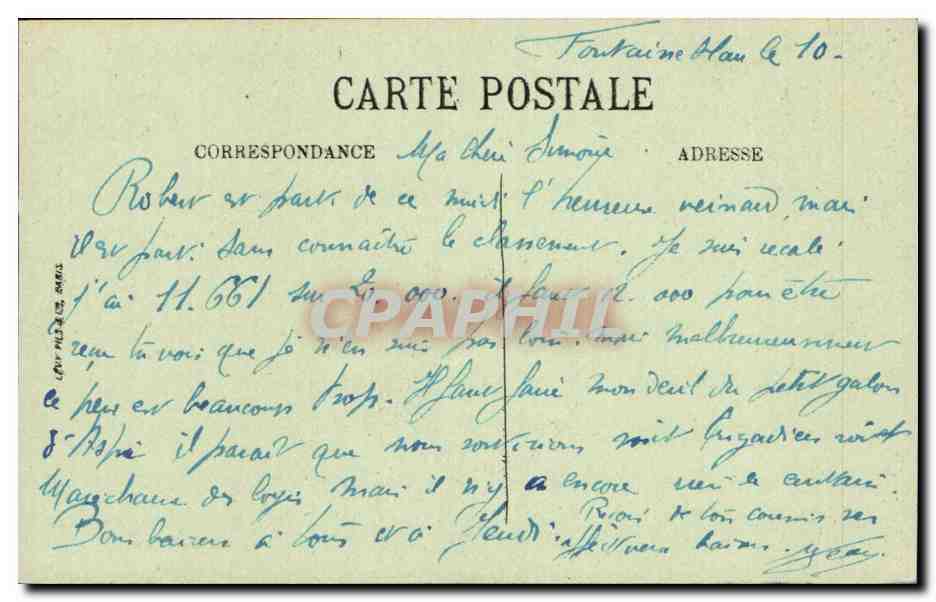 Fontainebleau le 10-
CARTE POSTALE
CORRESPONDANCE Ma cheri Simone ADRESSE
Robert est parti de ce midi l'heureux veinard, mais
il est parti sans connaître le classement. Je suis recalé
j'ai 11.661 sur 20.000. Il faut 12.000 pour être
reçu tu vois que je n'en suis pas loin. mais malheureusement
ce peu est beaucoup trop. Il faut faire mon deuil du petit galon
d'Aspi il parait que nous sortirions soit brigadiers soit
Marechaux des logis mais il n'y a encore rien de certain.
Bons baisers à tous et à Jeudi.
Reçois de ton cousin ses
affectueux baisers.
LEVY FILS & Cie, PARIS
CPAPHIL